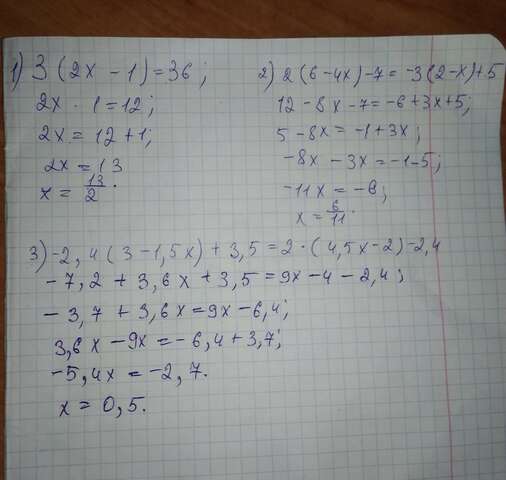 1) 3 (2x - 1) = 36;
2x - 1 = 12;
2x = 12 + 1;
2x = 13
x = 13/2.
2) 2(6 - 4x) - 7 = -3(2 - x) + 5
12 - 8x - 7 = -6 + 3x + 5;
5 - 8x = -1 + 3x;
-8x - 3x = -1 - 5;
-11x = -6;
x = 6/11.
3) -2,4(3 - 1,5x) + 3,5 = 2·(4,5x - 2) - 2,4
-7,2 + 3,6x + 3,5 = 9x - 4 - 2,4;
-3,7 + 3,6x = 9x - 6,4;
3,6x - 9x = -6,4 + 3,7;
-5,4x = -2,7.
x = 0,5.